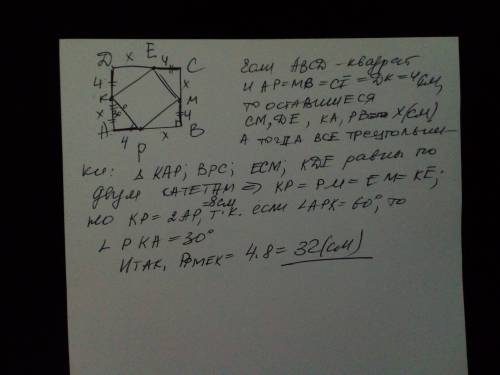 D x E 4 C
4 x
K M
x 4
A B
4 x
P
Если ABCD - квадрат
и AP=MB=CE=DK=4см,
то оставшиеся
CM, DE, KA, PB = x(см)
А тогда все треугольни-
ки: Δ KAP; BPC; ECM; KDE равны по
двум катетам => KP=PM=EM=KE;
но KP=2AP, т.к. если ∠APK=60°, то
=8см
∠ PKA=30°
Итак, PPMEK= 4·8= 32(см)